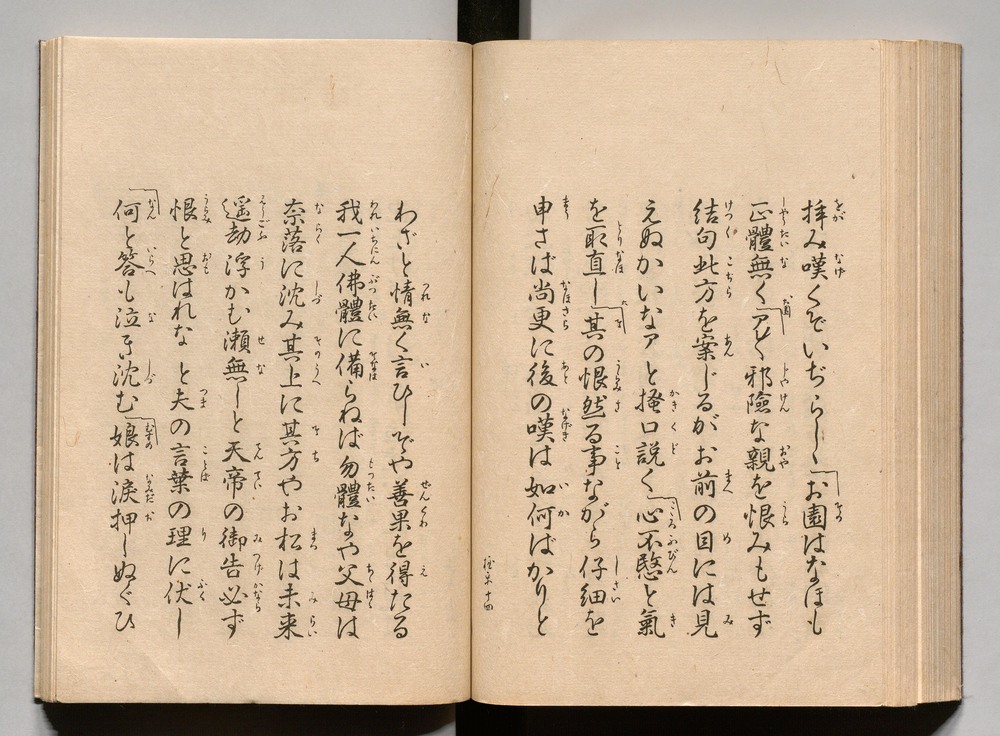 拝み嘆くぞいぢらしく「お園はなほも
正體無く「アヽ邪險な親を恨みもせず
結句此方を案じるがお前の目には見
えぬかいなァと掻口説く「心不愍と氣
を取直し「其の恨然る事ながら仔細を
申さば尚更に後の嘆は如何ばかりと
わざと情無く言ひしぞや善果を得たる
我一人佛體に備らねば勿體なや父母は
奈落に沈み其上に其方やお松は未来
遥劫浮かむ瀬無しと天帝の御告必ず
恨と思はれな と夫の言葉の理に伏し
「何と答も泣き沈む「娘は涙押しぬぐひ